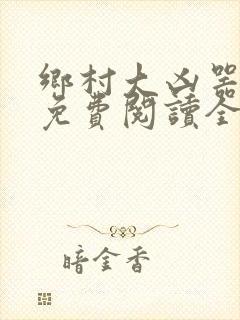 鄉村大凶器
免費閱讀全
暗金香